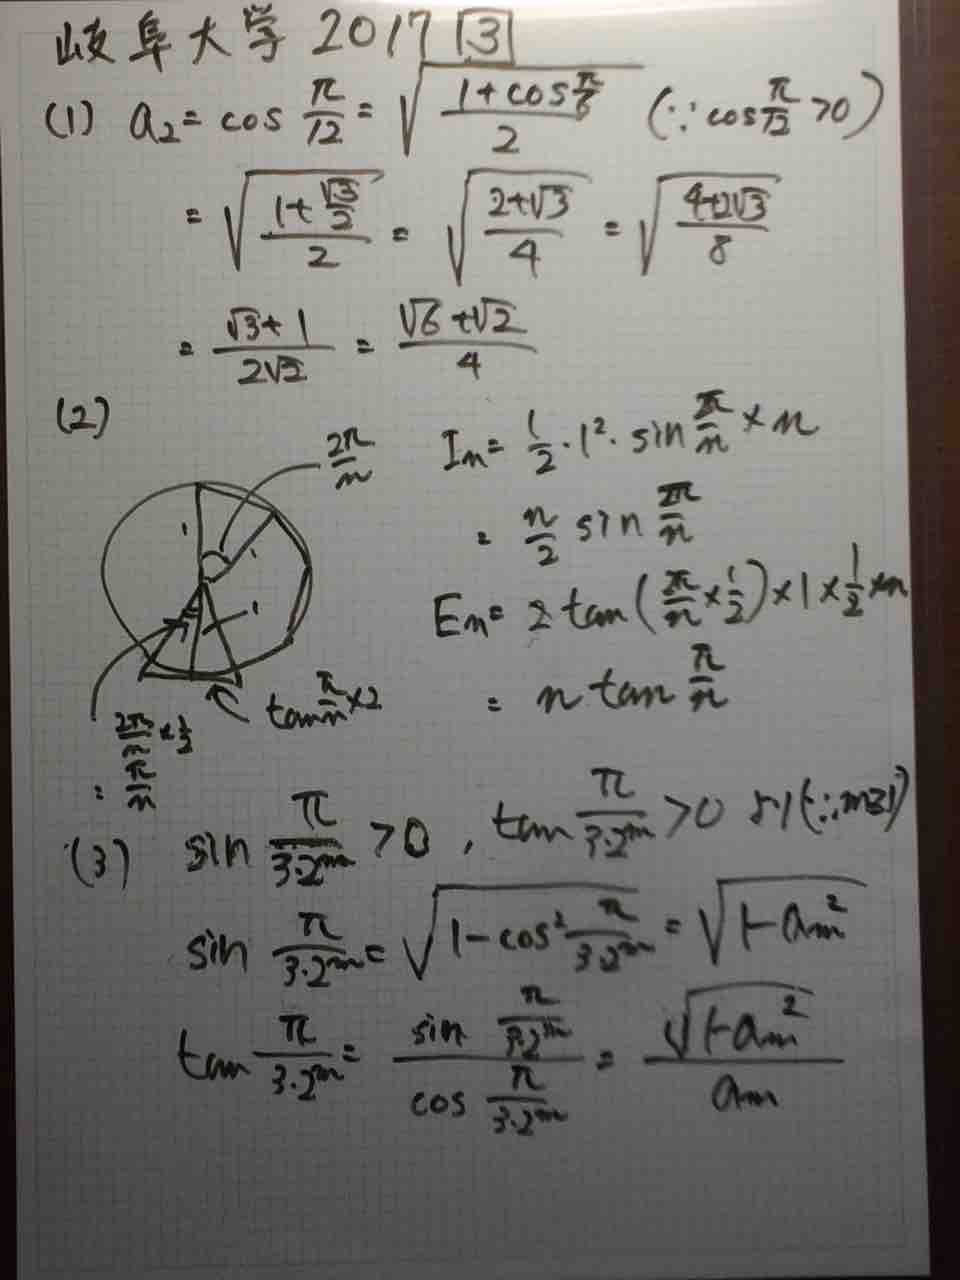 岐阜大学 2017 3
(1) a₂ = cos π/12 = √((1+cos π/6)/2) (∵ cos π/12 >0)
= √((1+√3/2)/2) = √((2+√3)/4) = √((4+2√3)/8)
= (√3+1)/(2√2) = (√6+√2)/4
(2)
2π/n
Iₙ = 1/2・1²・sin 2π/n × n
= n/2 sin 2π/n
1
1
1
Eₙ = 2 tan (2π/n × 1/2) × 1 × 1/2 × n
= n tan π/n
tan π/n × 2
2π/n × 1/2
= π/n
(3) sin π/(3・2ᵐ) >0 , tan π/(3・2ᵐ) >0 より (∵ m≧1)
sin π/(3・2ᵐ) = √(1-cos² π/(3・2ᵐ)) = √(1-aₘ²)
tan π/(3・2ᵐ) = (sin π/(3・2ᵐ))/(cos π/(3・2ᵐ)) = √(1-aₘ²)/aₘ